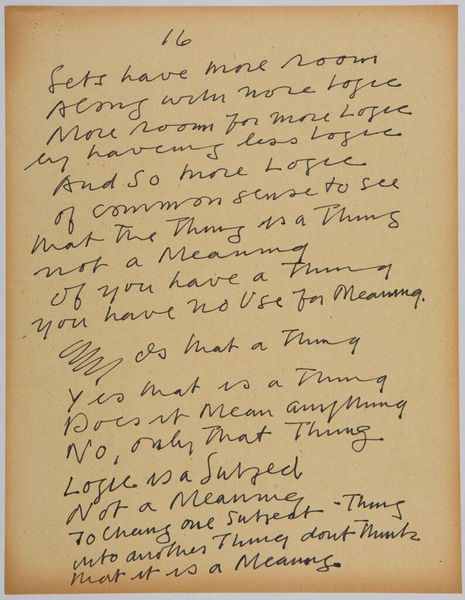 16
Lets have more room
Along with more Logic
More room for more Logic
by haveing less Logic
And so more Logic
of common sense to see
that the Thing is a Thing
not a Meaning
If you have a Thing
you have no Use for Meaning.
Is that a Thing
Yes that is a Thing
Does it Mean anything
No, only that Thing
Logic is a Subject
Not a Meaning
To Chang one Subject - Thing
into another Thing dont Think
that it is a Meaning